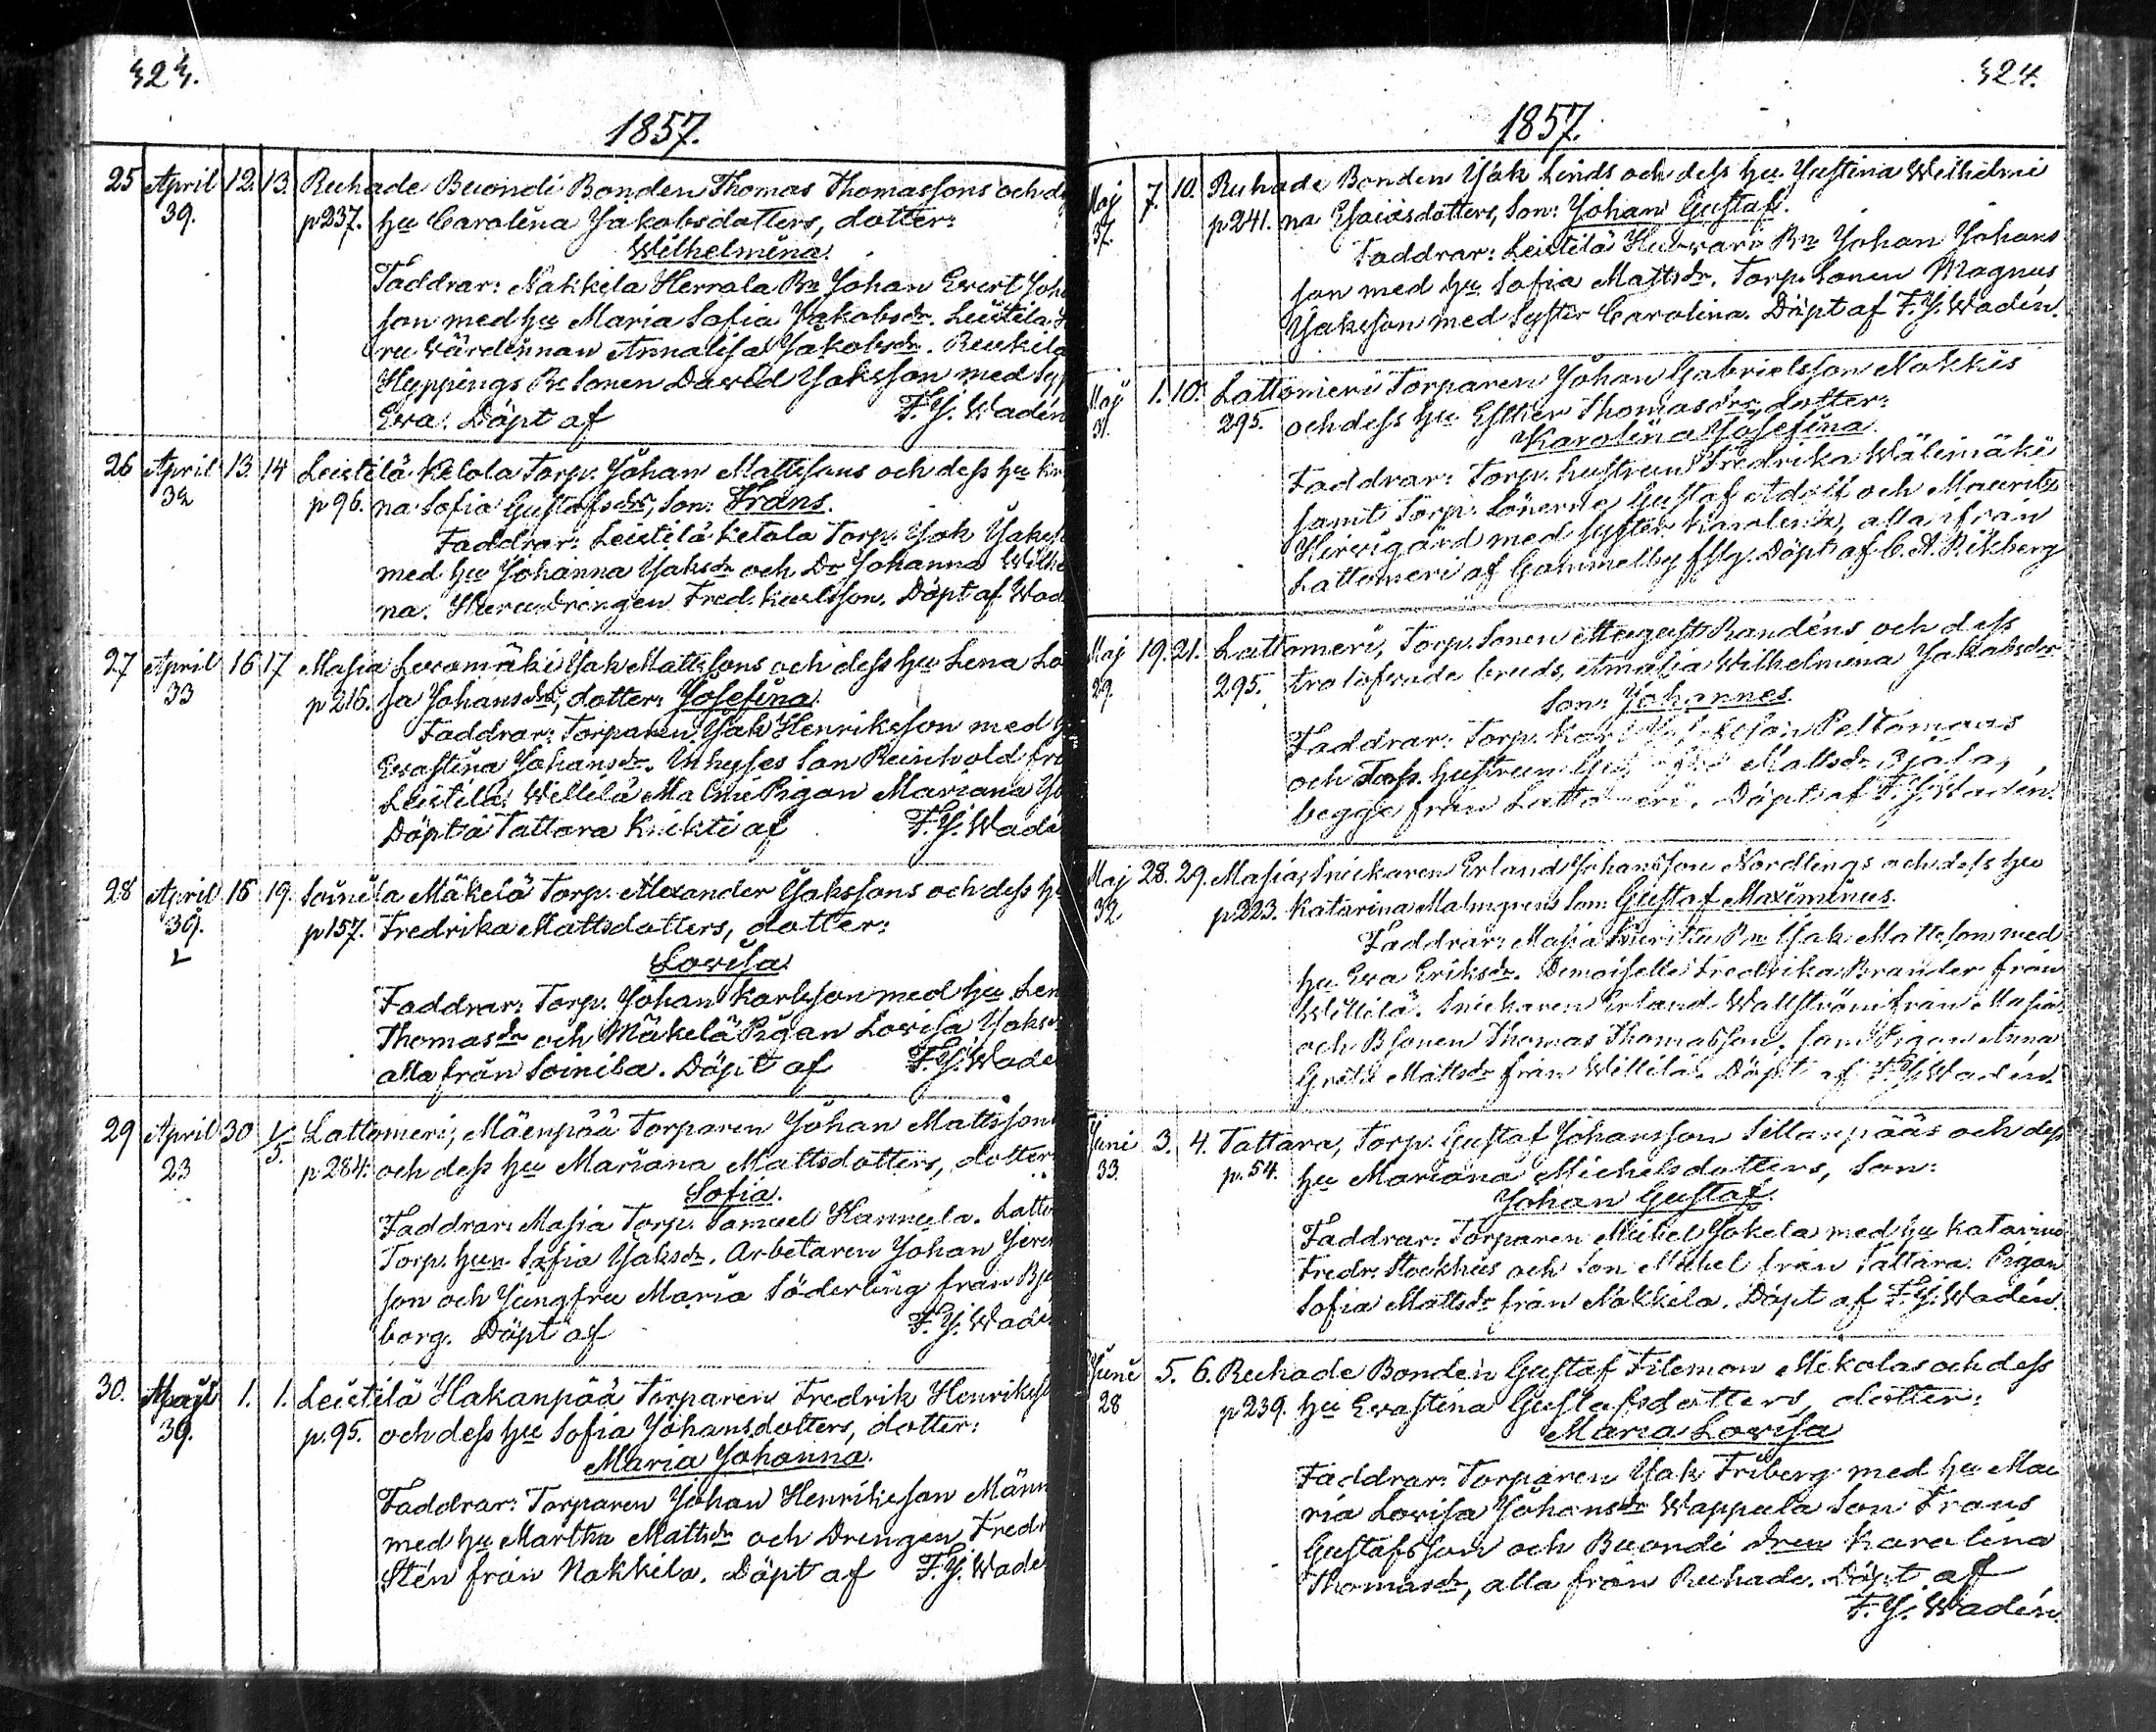 424.
1857.
25 April 12. 13. Ruhade Buondi Bonden Thomas Thomassons och de
39. p 237. hu Carolina Jakobsdotters, dotter:
Wilhelmina.
Faddrar: Nakkila Herrala Bn Johan Evert Joha
son med hu Maria Sofia Jakobsdr. Leistilä
ru Värdinnan Annalisa Jakobsdr. Ruskila
Hyppings Bn Sonen David Jaksson med Sys
Eva. Döpt af F. J. Wadén
26 April 13 14 Leistilä Ketola Torp. Johan Mattssons och dess hu
32 p 96. na Sofia Gustafsdrs, Son: Frans.
Faddrar: Leistilä Ketola Torp. Jak Jakss
med hu Johanna Jaksdr och Dr Johanna Wilhe
na. Drengen Fred. Karlsson. Döpt af Wad
27 April 16 17 Masia Levomäki Jak Mattssons och dess hu Lena Lo
33 p 216. sa Johansdrs, dotter: Josefina.
Faddrar: Torparen Jak Henriksson med h
Evastina Johansdr. Inhyses Son Reinhold frå
Leistilä. Willilä Malmi Pigan Mariana Jo
Döpt å Tattara Knikti af F. J. Wadé
28 April 15 19. Soinila Mäkelä Torp. Alexander Jakssons och dess h
39. p 157. Fredrika Mattsdotters, dotter:
Lovisa.
Faddrar: Torp. Johan Karlsson med hu Len
Thomasdr och Mäkelä Pigan Lovisa Jaksd
alla från Soinila. Döpt af F. J. Wadé
29 April 30 1/5 Lattomeri, Mäenpää Torparen Johan Mattsson
23 p 284. och dess hu Mariana Mattsdotters, dotter
Sofia.
Faddrar: Masia Torp. Samuel Hannula. Latto
Torp. hun Sofia Jaksdr. Arbetaren Johan Jere
son och Jungfru Maria Söderling från Bjö
borg. Döpt af F. J. Wadé
30. Maji 1. 1. Leistilä Hakanpää Torparen Fredrik Henrikss
39. p. 95. och dess hu Sofia Johansdotters, dotter:
Maria Johanna.
Faddrar: Torparen Johan Henriksson Männ
med hu Martha Mattsdr och Drengen Fredr
Stén från Nakkila. Döpt af F. J. Wadé
424.
1857.
Maj 7. 10. Ruhade Bonden Jak Linds och dess hu Justina Wilhelmi
37. p 241. na Esaiasdotters, Son: Johan Gustaf.
Faddrar: Leistilä Bn Johan Johans
son med hu Sofia Mattsdr. Torp. Sonen Magnus
Jaksson med Syster Carolina. Döpt af F. J. Wadén.
Maj 1. 10. Lattomeri Torparen Johan Gabrielsson Nokkis
31. 295. och dess hu Esther Thomasdrs dotter:
Karolina Josefina.
Faddrar: Torp. hustrun Fredrika Wälimäki
samt Torp. Sönerne Gustaf Adolf och Mauritz
Hirvigård med syster Karolina, alla ifrån
Lattomeri af Gammelby fslg. Döpt af C. A. Rikberg
Maj 19. 21. Lattomeri, Torp. Sonen August Randéns och dess
29. 295. trolofvade bruds, Amalia Wilhelmina Jakobsdrs
Son: Johannes.
Faddrar: Torp. Karl Peltomaas
och Torp. hustrun Mattsdr
begge från Lattomeri. Döpt af F. J. Wadén.
Maj 28. 29. Masia, Snickaren Erland Johansson Nordlings och dess hu
32 p 223. Katarina Malmgrens Son: Gustaf Maximinus.
Faddrar: Masia Bn Jak Mattsson med
hu Eva Eriksdr. Demoiselle Fredrika Brander från
Willilä. Snickaren Erland Wallström från Masia
och Bsonen Thomas Thomasson, samt Pigan Anna
Greta Mattsdr från Willilä. Döpt af F. J. Wadén.
Juni 3. 4. Tattara, Torp. Gustaf Johansson Sillanpääs och dess
33. p. 54. hu Mariana Michelsdotters, Son:
Johan Gustaf.
Faddrar: Torparen Mikel Jokela med hu Katarina
Fredr. Stockhus och Son Mikel från Tattara. Pigan
Sofia Mattsdr från Nakkila. Döpt af F. J. Wadén.
Juni 5. 6. Ruhade Bonden Gustaf Filemon Mikolas och dess
28 p 239. hu Evastina Gustafsdotters, dotter:
Maria Lovisa
Faddrar: Torparen Jak Friberg med hu Ma
ria Lovisa Johansdr Wappula Son Frans
Gustafsson och Buondi Karolina
Thomasdr, alla från Ruhade. Döpt af
F. J. Wadén.